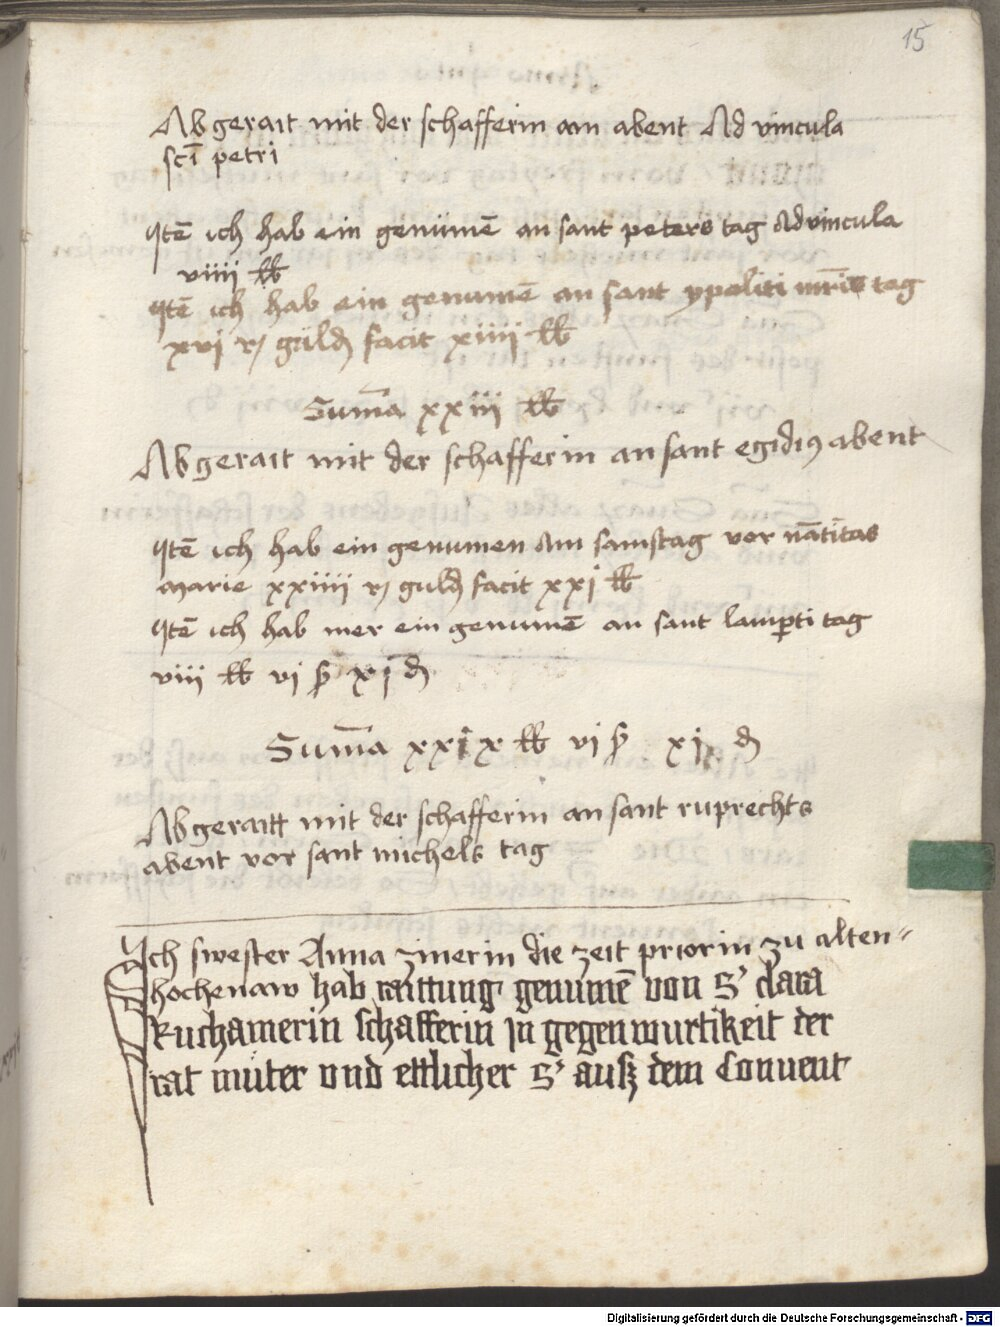 15
Abgerait mit der schafferin am abent Ad vincula
sci petri
Itē ich hab ein genumē an sant peters tag Ad vincula
viiii lb
Itē ich hab ein genumē an sant ypoliti mris tag
xvi r guld facit xiiii lb
Suma xxiii lb
Abgerait mit der schafferin an sant egidiꝰ abent
Itē ich hab ein genumen am samstag vor natitas
marie xxiiii r guld facit xxi lb
Itē ich hab mer ein genumē an sant lamperti tag
viii lb vi ß xi d
Suma xxix lb vi ß xi d
Abgeraitt mit der schafferin an sant ruprechts
abent vor sant michels tag
Ich swester Anna zinerin die zeit priorin zu alten-
hochenaw hab raittung genumē von S' clara
Kuchamerin schafferin in gegenwurtikeit der
rat müter vnd ettlicher S' auß dem Conuent
Digitalisierung gefördert durch die Deutsche Forschungsgemeinschaft - DFG